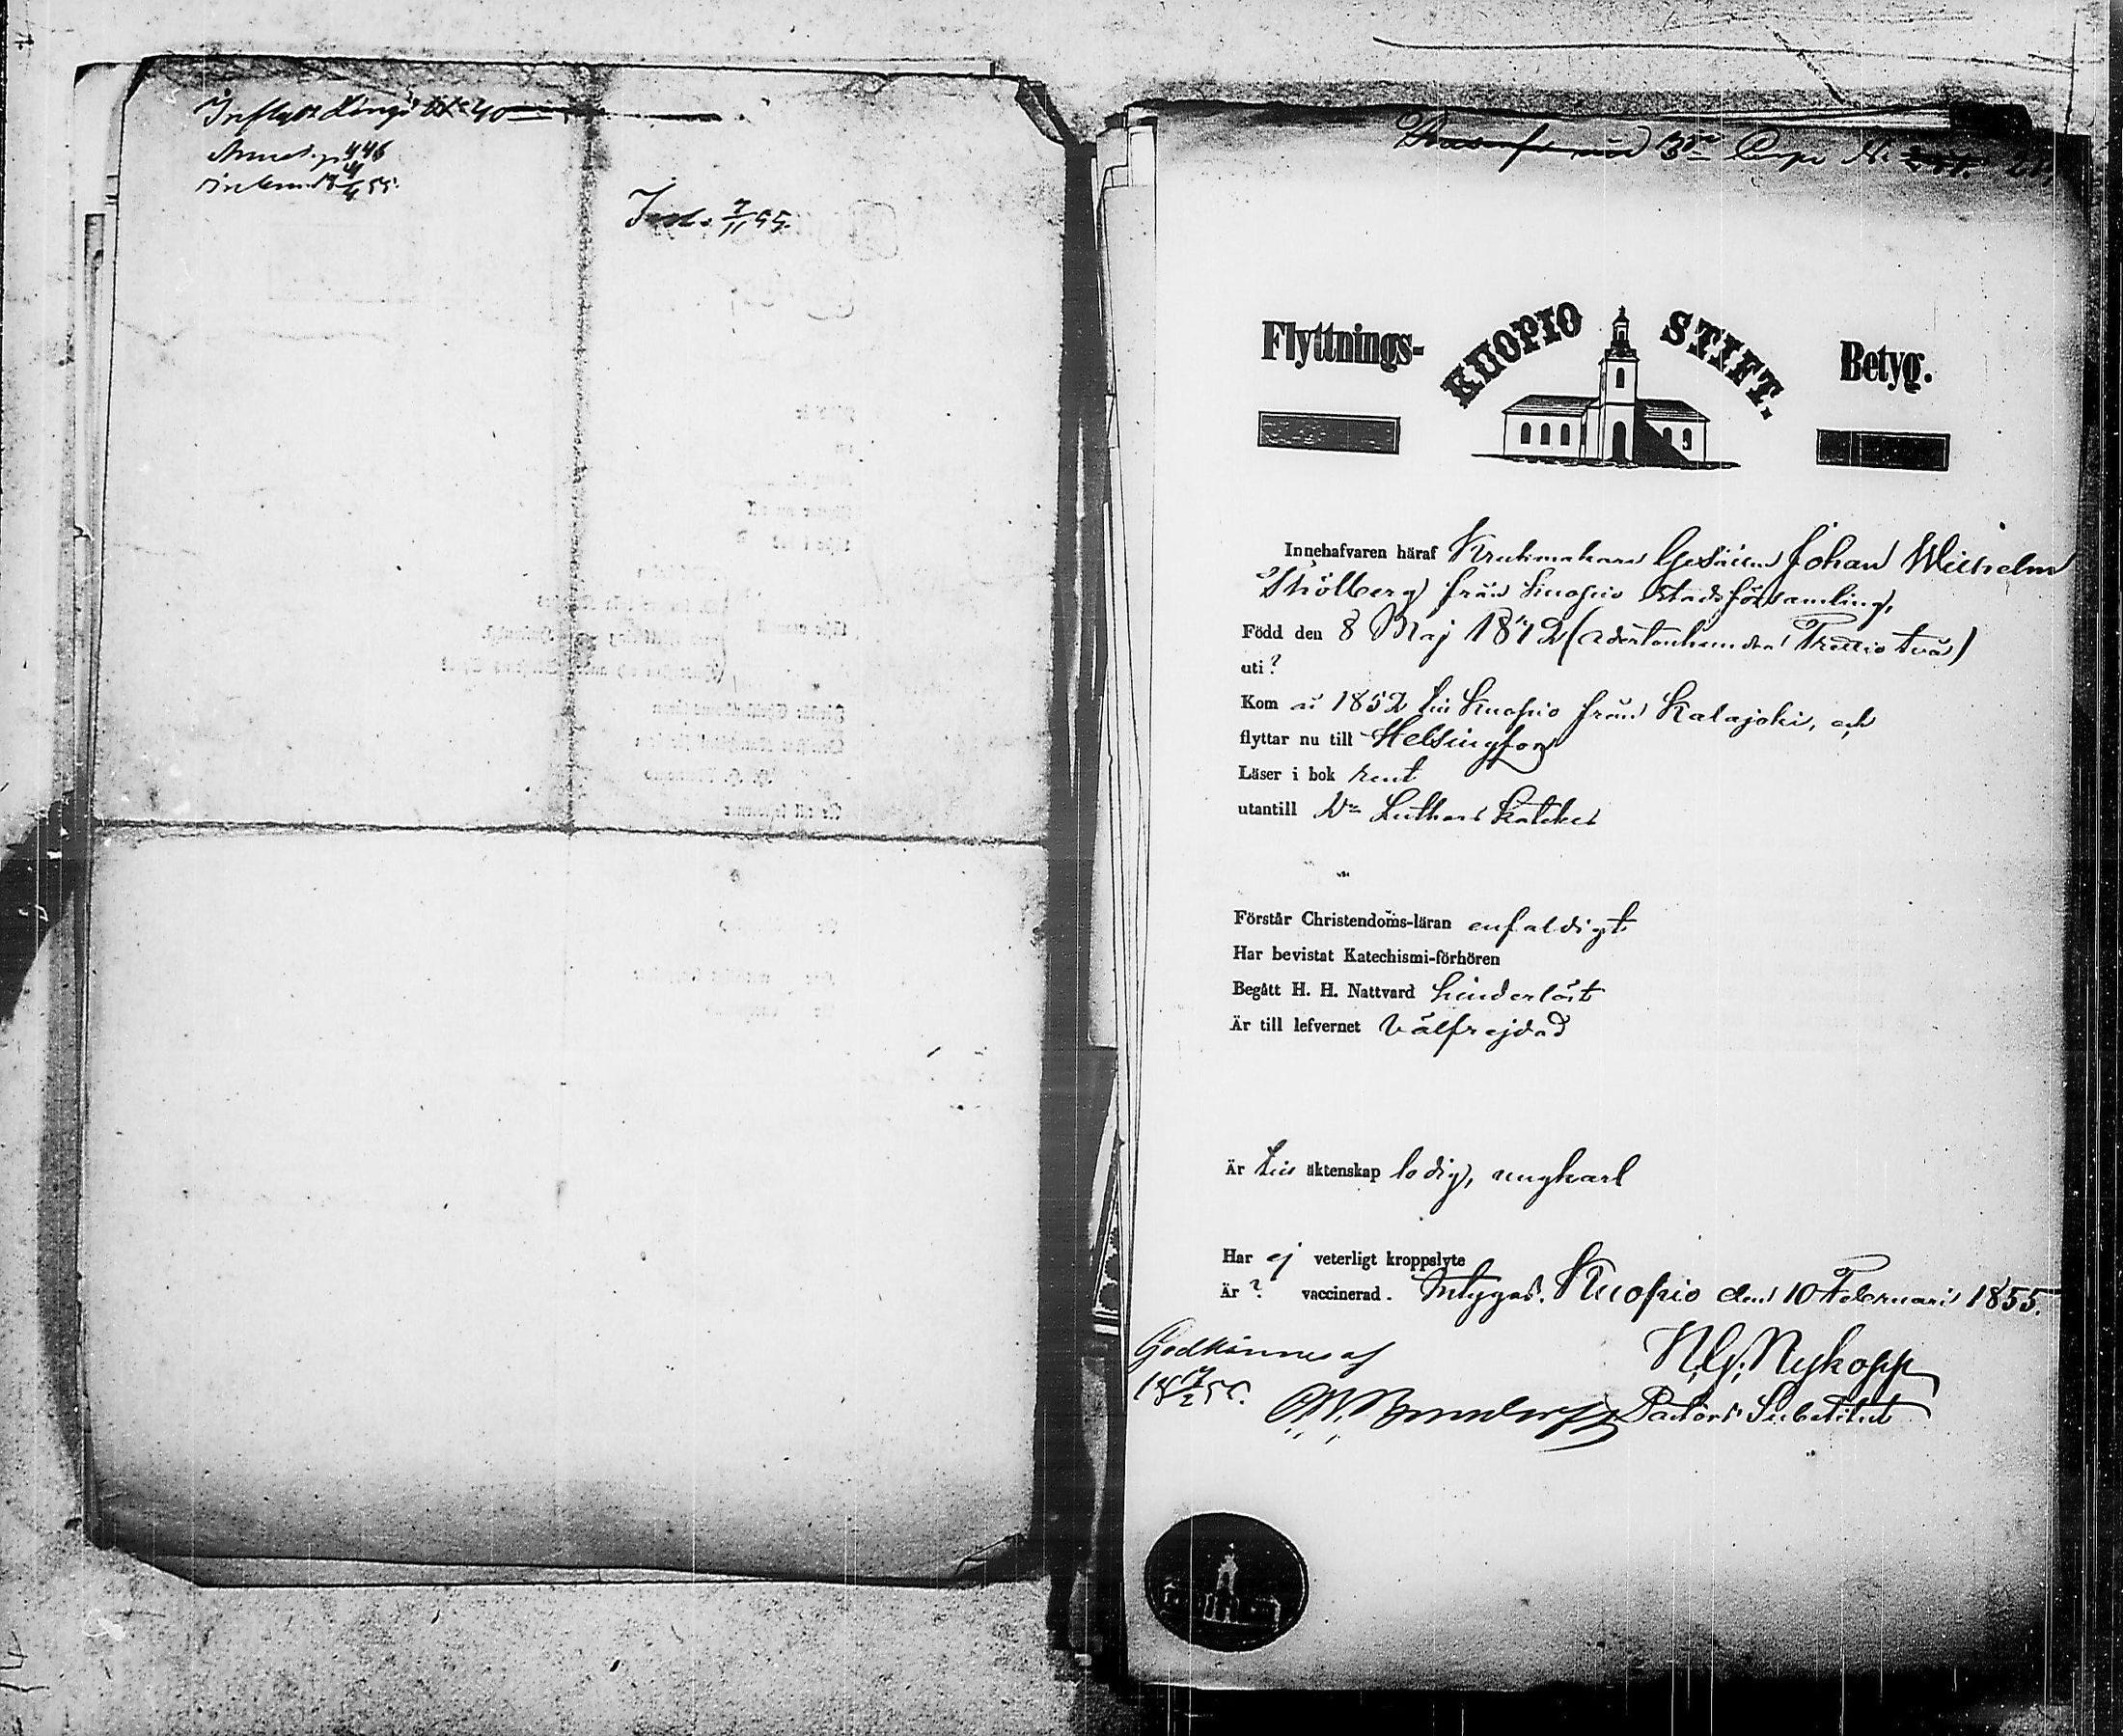 Inflytt Längd No 40
Anned. p. 446
Inl. 7/11 55.
3ne No
Flyttnings- KUOPIO STIFT. Betyg.
Innehafvaren häraf Krukmakare Gesällen Johan Wilhelm
Ståhlberg från Kuopio Stadsförsamling,
Född den 8 Maj 1832 (adertonhundra Trettio två)
uti ?
Kom år 1852 till Kuopio från Kalajoki, och
flyttar nu till Helsingfors
Läser i bok rent
utantill Dr Luthers Kateches
Förstår Christendoms-läran enfaldigt
Har bevistat Katechismi-förhören
Begått H. H. Nattvard hinderlöst
Är till lefvernet välfrejdad
Är till äktenskap ledig, ungkarl
Har ej veterligt kroppslyte
Är ? vaccinerad. Intygas. Kuopio den 10 Februari 1855.
Godkännes af
N. G. Nykopp
Pastors Substitut